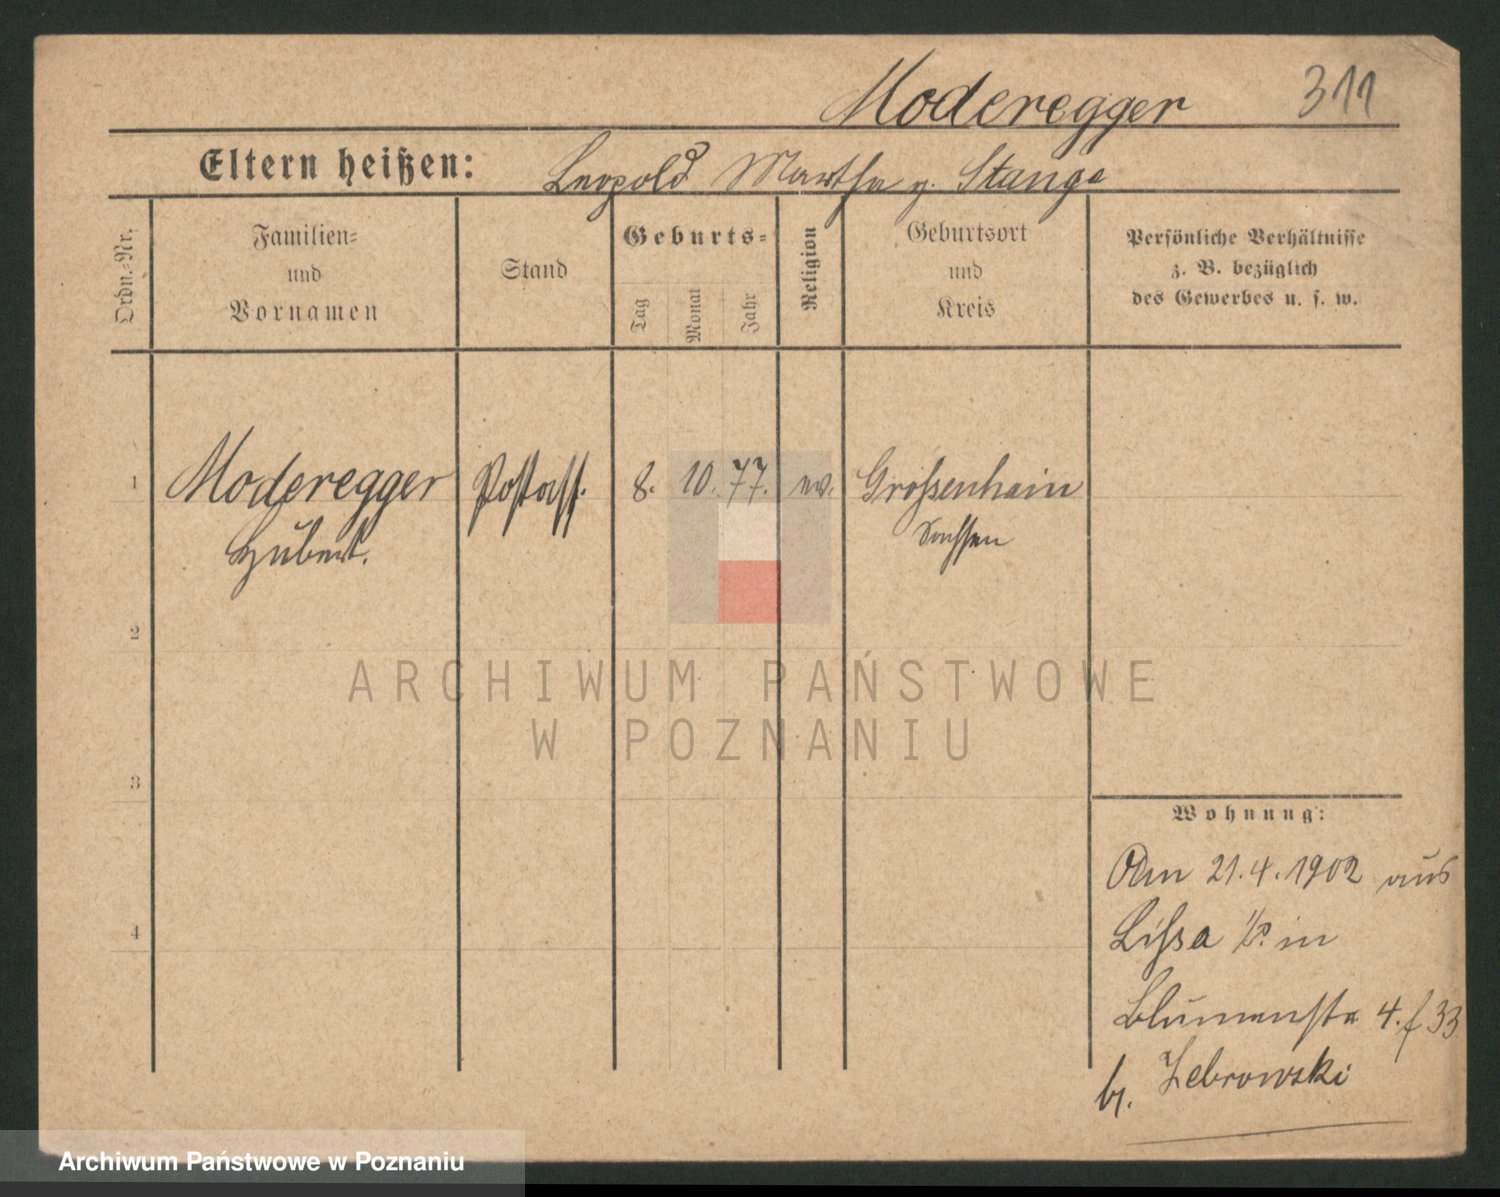 Moderegger 311
Eltern heißen: Leopold Martha g. Stange
Ordn.-Nr.
Familien-
und
Vornamen
Stand
Geburts-
Tag
Monat
Jahr
Religion
Geburtsort
und
Kreis
Persönliche Verhältnisse
z. B. bezüglich
des Gewerbes u. s. w.
1 Moderegger Postass. 8. 10. 77. ev. Großenhain
Hubert. Sachsen
2
3
4
Wohnung:
Am 21.4.1902 aus
Lissa i/P. in
Blumenstr 4. f 33
b. Zebrowski
ARCHIWUM PAŃSTWOWE
W POZNANIU
Archiwum Państwowe w Poznaniu